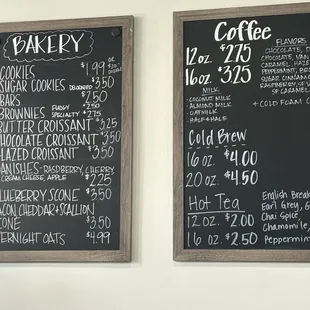 BAKERY
COOKIES $1.99 OR
SUGAR COOKIES DECORATED $3.50
BARS $2.50
BROWNIES FUDGY $2.50
SPECIALTY $2.75
BUTTER CROISSANT $3.25
CHOCOLATE CROISSANT $3.50
GLAZED CROISSANT $3.50
DANISHES - RASPBERRY, CHERRY,
CREAM CHEESE, APPLE $2.25
BLUEBERRY SCONE $3.50
BACON CHEDDAR + SCALLION
SCONE $3.50
OVERNIGHT OATS $4.99
Coffee
12 oz. $2.75
16 oz. $3.25
MILK
- COCONUT MILK
- ALMOND MILK
- OATMILK
- HALF & HALF
FLAVORS
CHOCOLATE,
CHOCOLATE,
CARAMEL,
PEPPERMINT,
SUGAR
RASPBERRY,
SF CARAMEL
+ COLD FOAM
Cold Brew
16 oz. $4.00
20 oz. $4.50
Hot Tea
12 oz. $2.00
16 oz. $2.50
English Breakf
Earl Grey, G
Chai Spice
Chamomile,
Peppermin